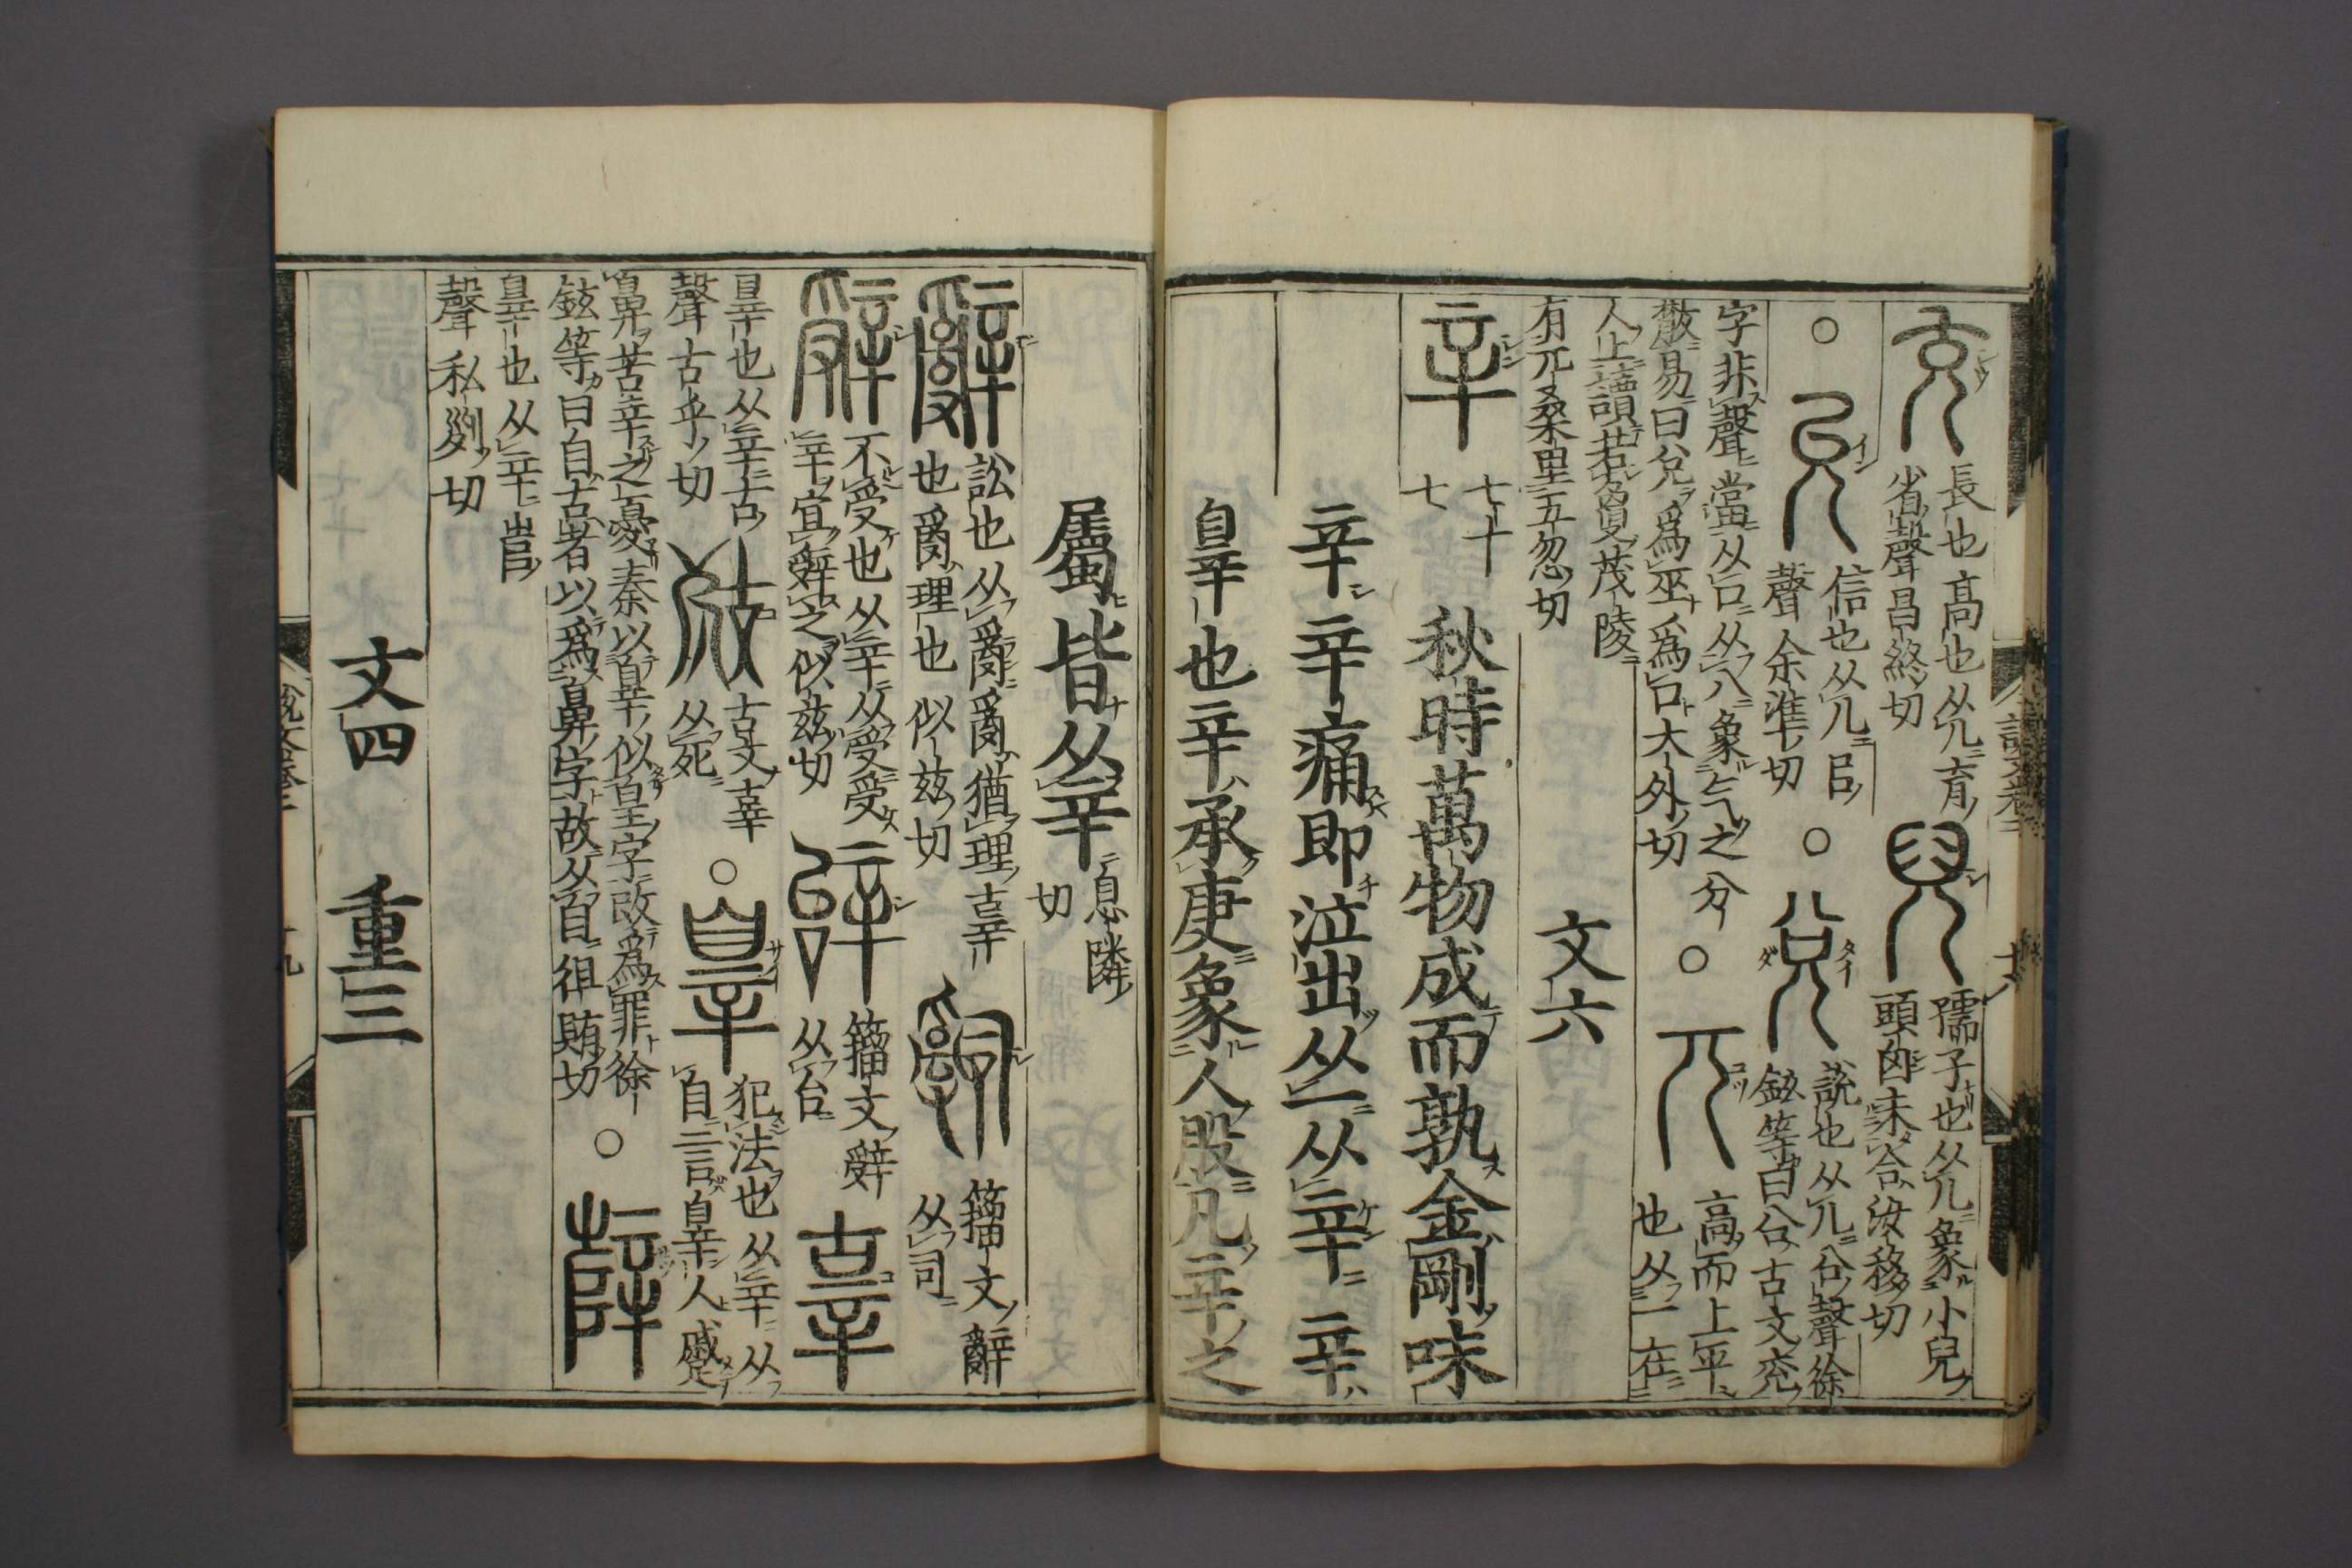 充 長也高也从儿育
省聲昌終切
兒 孺子也从儿象小兒
頭囟未合汝移切
○ 允 信也从儿㠯
聲余準切
○ 兌 說也从儿㕣聲徐
鉉等曰㕣古文兖
字非聲當从口从八象气之分
㪚易曰兌爲巫爲口大外切
○ 兀 高而上平
也从一在
人上讀若敻茂陵
有兀桑里五忽切
文六
辛 七十
七
秋時萬物成而孰金剛味
辛辛痛即泣出从一从䇂辛
辠也辛承庚象人股凡辛之
屬皆从辛 息隣
切
辭 訟也从𤔔𤔔猶理辜
也𤔔理也似兹切
嗣 籀文辭
从司
辤 不受也从辛从受受
辛宜辤之似兹切
𨐔 籀文辤
从台
辜 辠也从辛古
聲古乎切
𣨙 古文辜
从死
○ 辠 犯法也从辛从
自言辠人蹙
鼻苦辛之憂秦以辠似皇字改爲罪徐
鉉等曰自古者以爲鼻字故从自徂賄切
○ 辥
辠也从辛㞷
聲私列切
文四 重三
說文卷二 十九